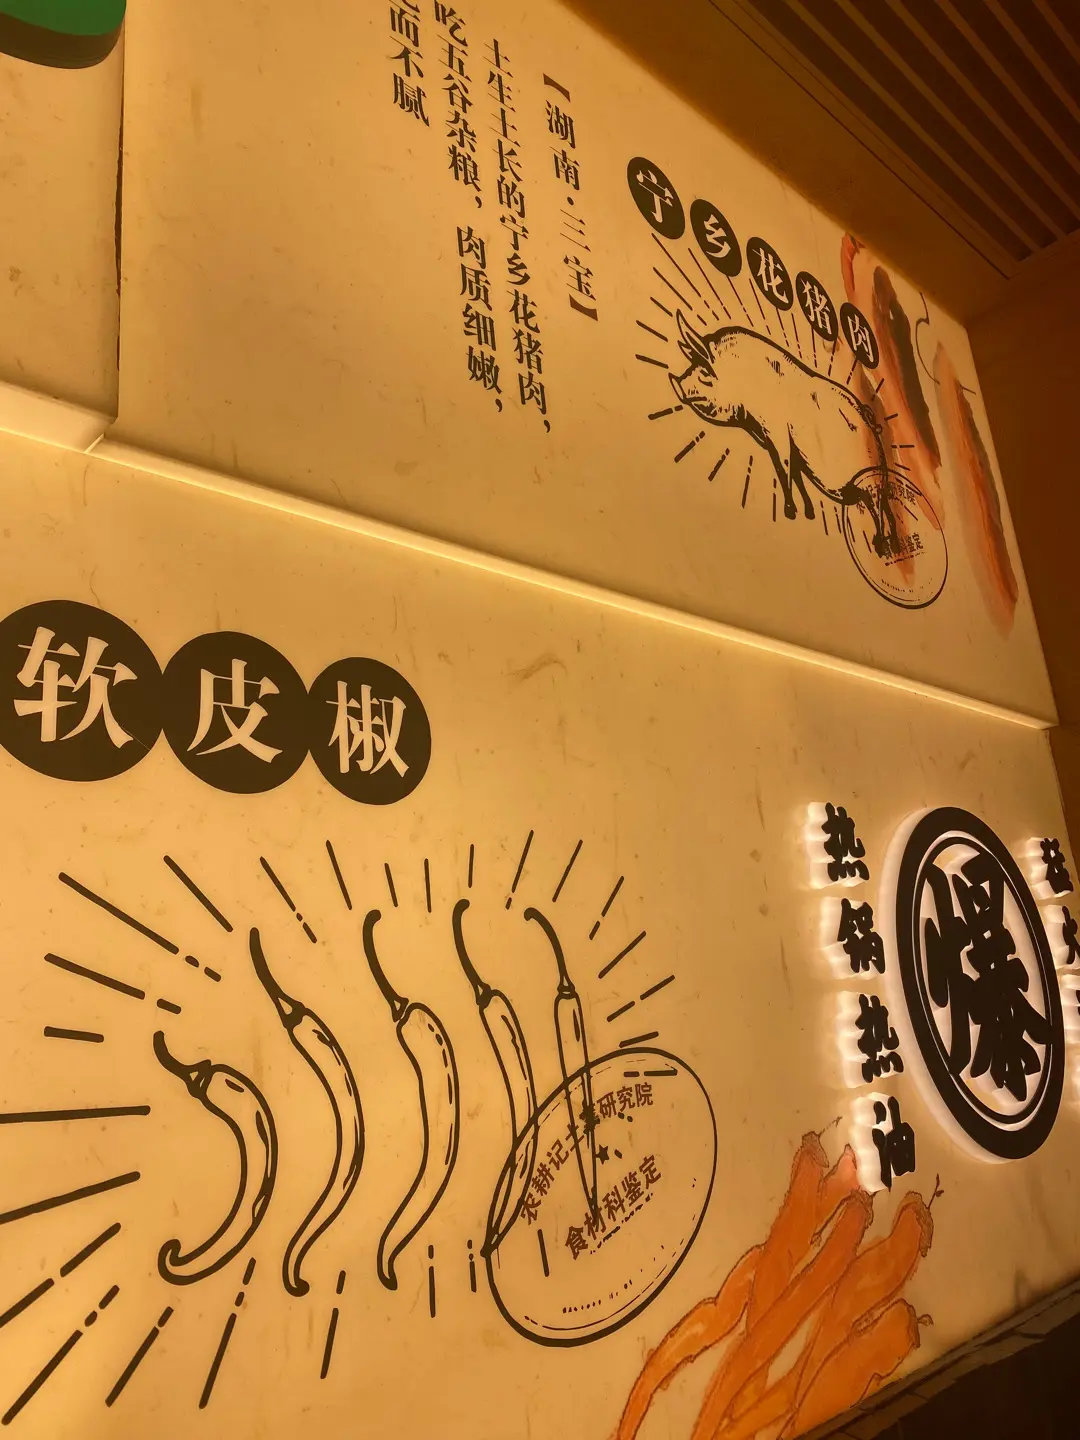 宁乡花猪肉
【湖南·三宝】
土生土长的宁乡花猪肉，
吃五谷杂粮，肉质细嫩，
而不腻
软皮椒
农耕记土菜研究院
食材科鉴定
热锅热油
爆
猛火